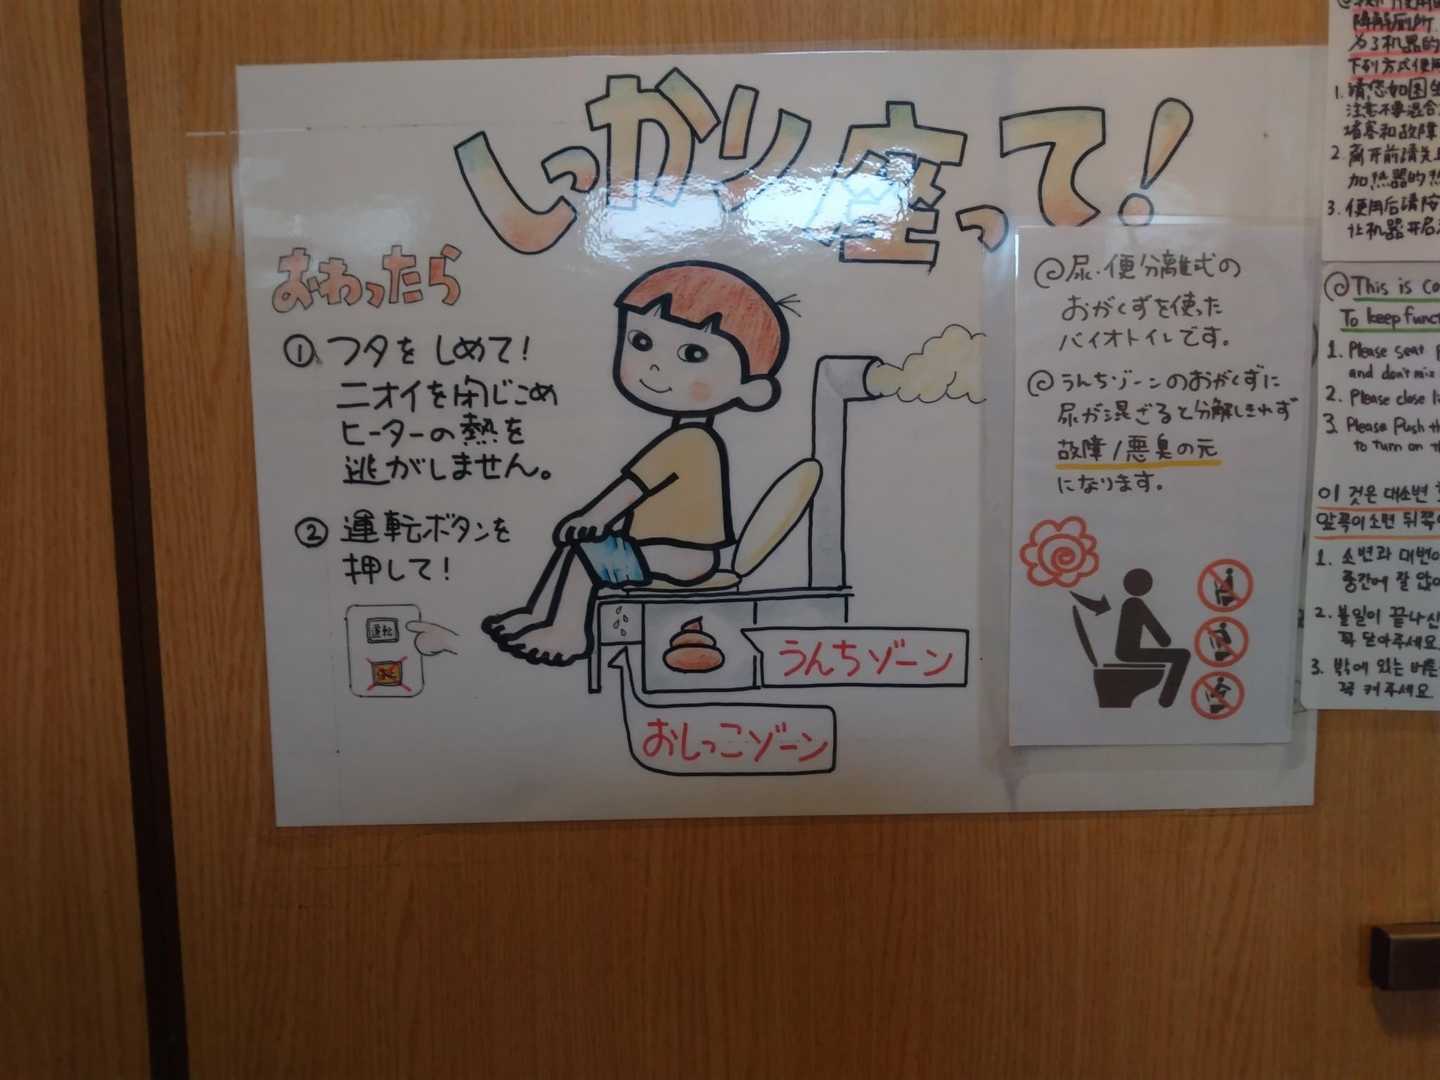 しっかり座って!
おわったら
① フタをしめて!
ニオイを閉じこめ
ヒーターの熱を
逃がしません。
② 運転ボタンを
押して!
運転
うんちゾーン
おしっこゾーン
◎尿・便分離式の
おがくずを使った
バイオトイレです。
◎うんちゾーンのおがくずに
尿が混ざると分解しきれず
故障/悪臭の元
になります。
降解厕所
为了机器的
下列方式使用
1. 请您如图坐
注意不要混合
堵塞和故障
2. 离开前请先
加热器的热
3. 使用后请按
让机器开启
◎This is co
To keep funct
1. Please seat
and don't mix
2. Please close li
3. Please Push th
to turn on th
이 것은 대소변
앞쪽이 소변 뒤쪽이
1. 소변과 대변이
중간에 잘 앉아
2. 볼일이 끝나신
꼭 닫아주세요
3. 밖에 있는 버튼
꼭 켜주세요